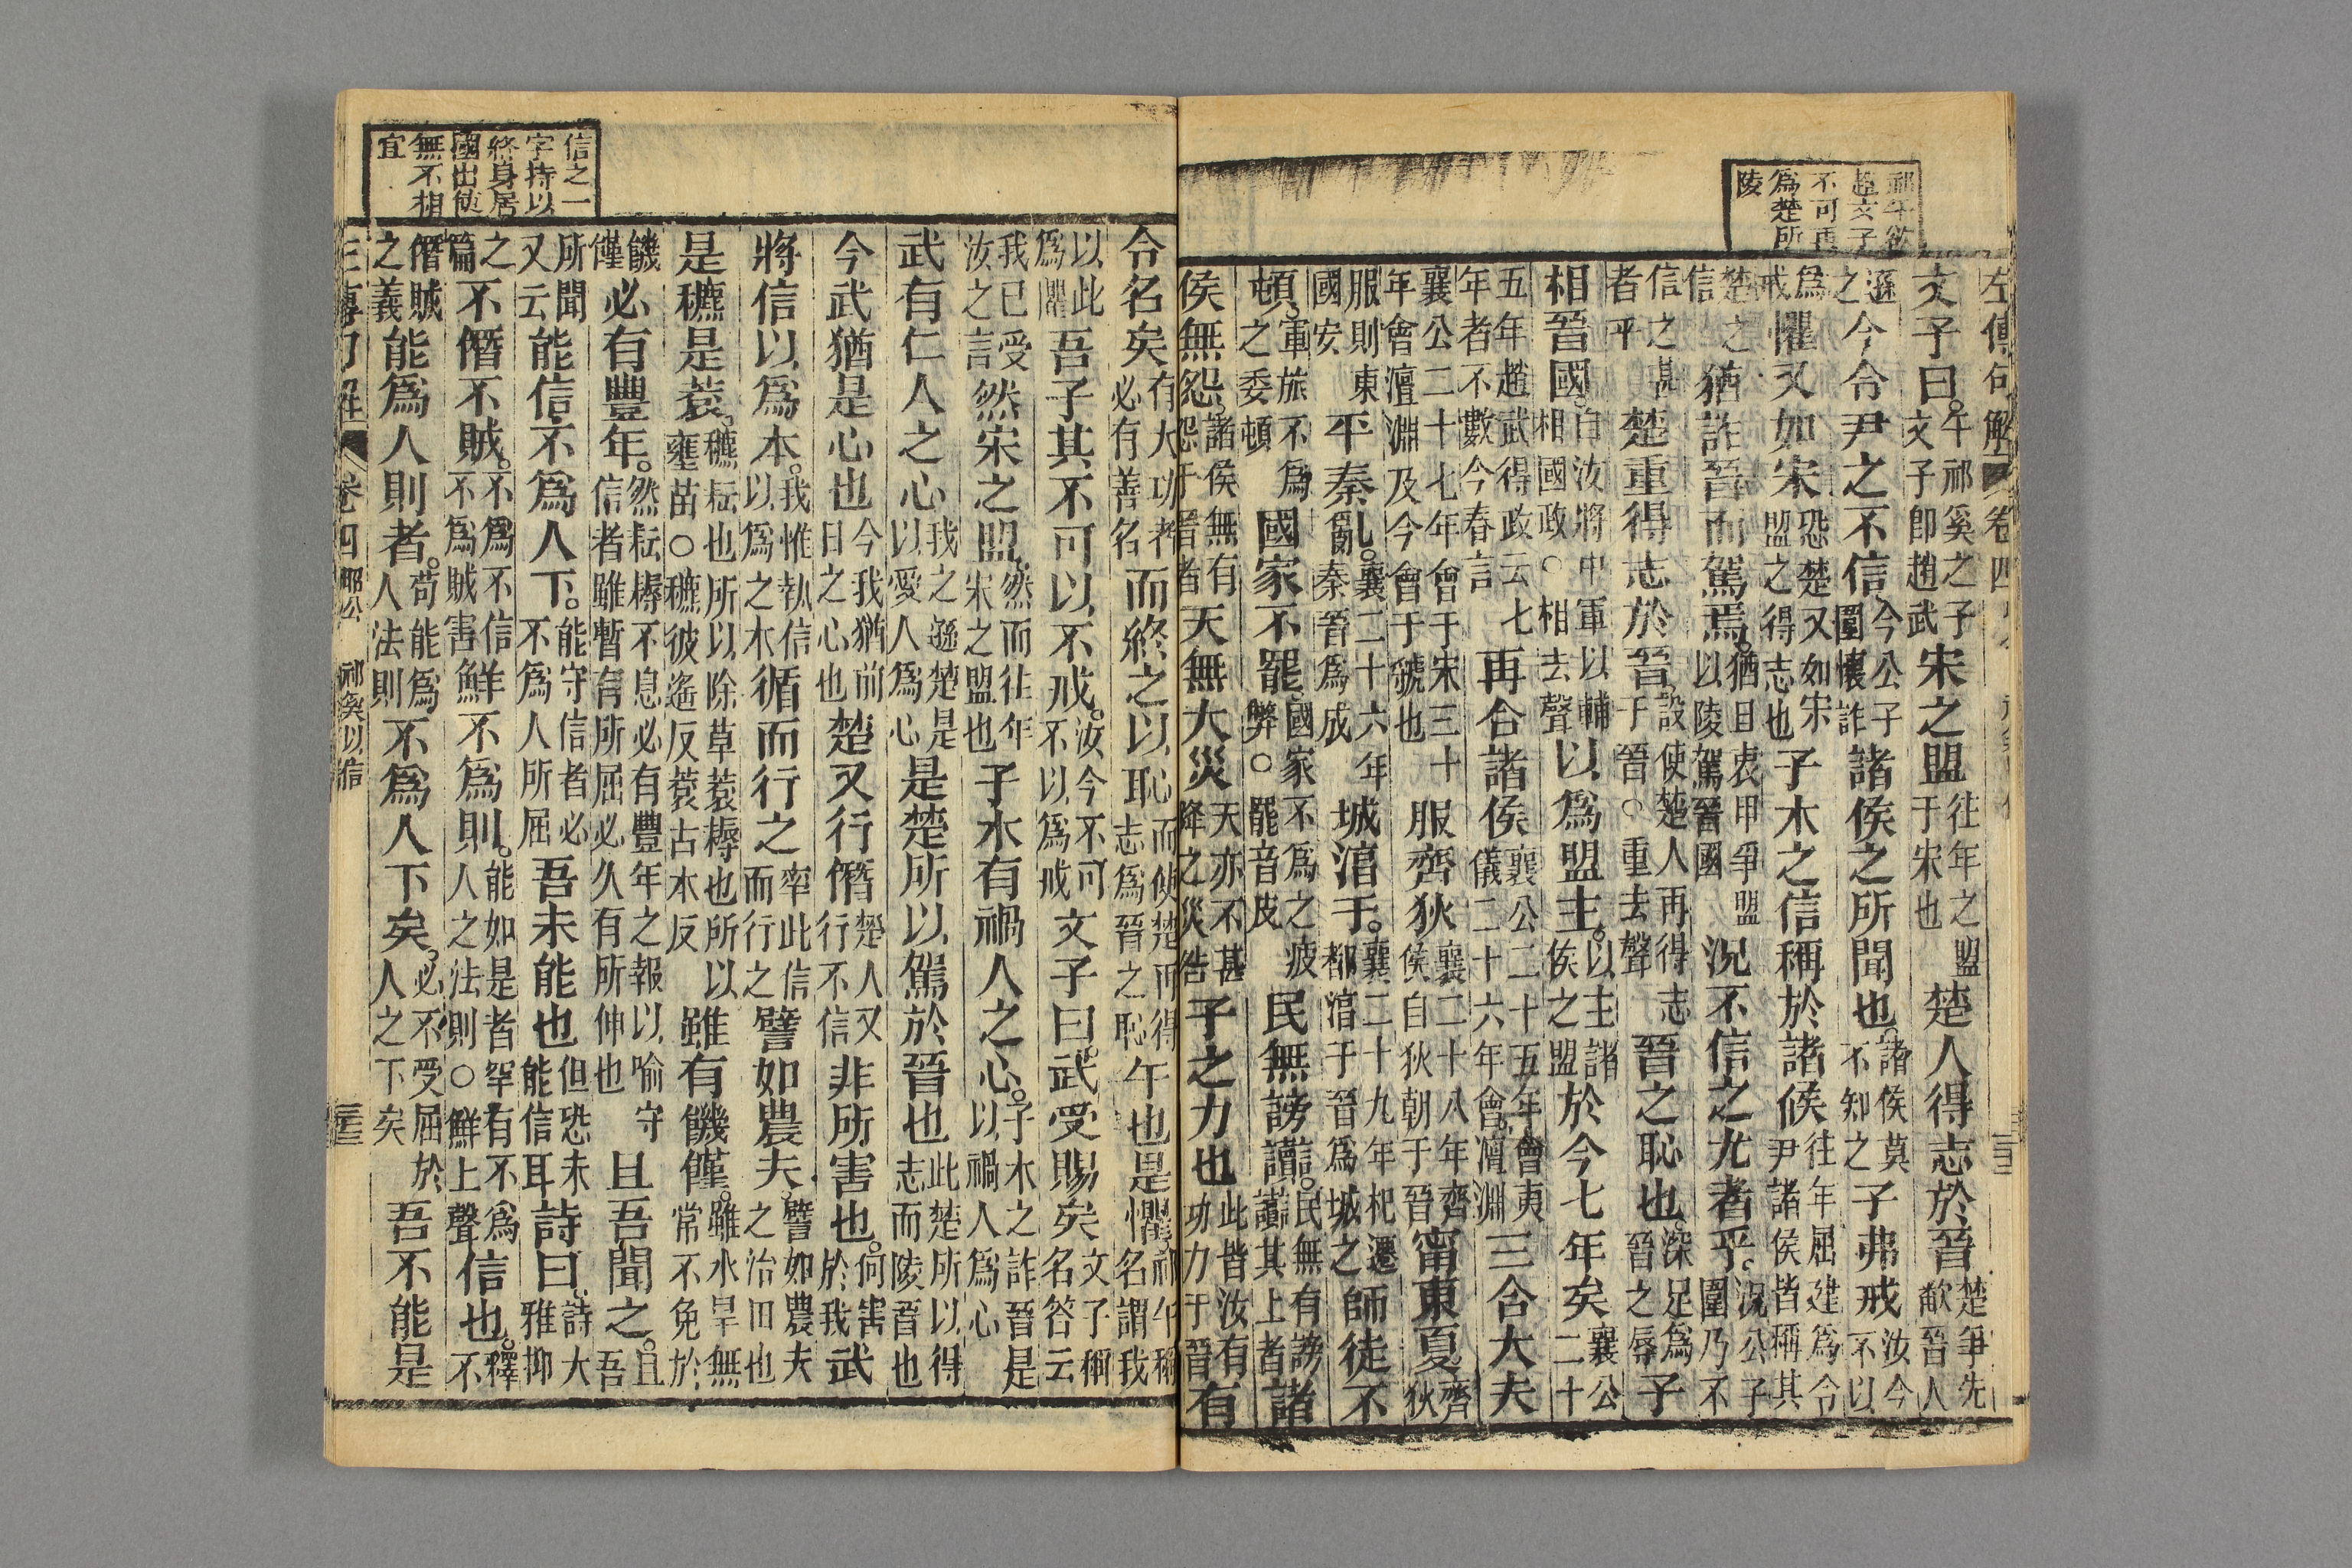 祁午欲
趙文子
不可再
爲楚所
陵
左傳句解 卷四
文子曰。午祁奚之子文子卽趙武宋之盟往年之盟于宋也楚人得志於晉楚爭先歃晉人
遜之今令尹之不信今公子圍懷詐諸侯之所聞也。諸侯莫不知之子弗戒汝今不以
爲戒懼又如宋恐楚又如宋盟之得志也子木之信稱於諸侯往年屈建爲令尹諸侯皆稱其
楚之信猶詐晉而駕焉。猶且衷甲爭盟以陵駕晉國況不信之尤者乎。況公子圍乃不
信之甚者乎楚重得志於晉。設使楚人再得志于晉○重去聲晉之恥也。深足爲晉之辱子
相晉國。自汝將中軍以輔相國政○相去聲以爲盟主。以主諸侯之盟於今七年矣襄公二十
五年趙武得政云七年者不數今春言再合諸侯襄公二十五年會夷儀二十六年會澶淵三合大夫
襄公二十七年會于宋三十年會澶淵及今會于虢也服齊狄襄二十八年齊侯自狄朝于晉甯東夏。齊狄
服則東國安平秦亂。襄二十六年秦晉爲成城淯于。襄二十九年杞遷都淯于晉爲城之師徒不
頓。軍旅不爲之委頓國家不罷。國家不爲之疲弊○罷音皮民無謗讟。民無有謗讟其上者諸
侯無怨。諸侯無有怨于晉者天無大災天亦不甚降之災告子之力也此皆汝有功力于晉有
信之一
字持以
終身居
國出使
無不相
宜
令名矣有大功者必有善名而終之以恥而使楚可得志爲晉之恥午也是懼祁午稱名謂我
以此爲懼吾子其不可以不戒。汝今不可不以爲戒文子曰。武受賜矣文子稱名答云
我已受汝之言然宋之盟。然而往年宋之盟也子木有禍人之心。子木之詐晉是以禍人爲心
武有仁人之心我之遜楚是以愛人爲心是楚所以駕於晉也此楚所以得志而陵晉也
今武猶是心也今我猶前日之心也楚又行僭楚人又行不信非所害也。何害於我武
將信以爲本。我惟執信以爲之木循而行之率此信而行之譬如農夫。譬如農夫之治田也
是穮是蓘。穮耘也所以除草蓘耨也所以壅苗○穮彼遙反蓘古本反雖有饑饉。雖水旱無常不免於
饑饉必有豐年。然耘耨不息必有豐年之報以喻守信者雖暫有所屈必久有所伸也且吾聞之。且吾
所聞又云能信不爲人下。能守信者必不爲人所屈吾未能也但恐未能信耳詩曰。詩大雅抑
之篇不僭不賊。不爲不信不爲賊害鮮不爲則。能如是者罕有不爲人之法則○鮮上聲信也。釋不
僭賊之義能爲人則者。苟能爲人法則不爲人下矣。必不受屈於人之下矣吾不能是
左傳句解 卷四 昭公 祁奚以信 三十三